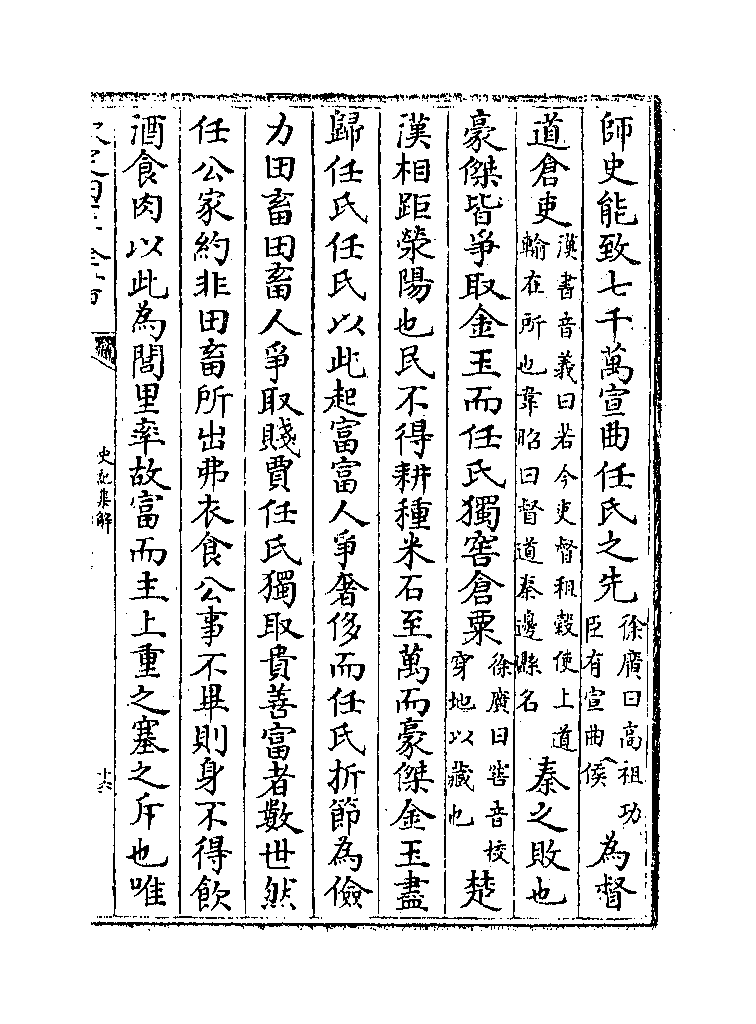 師史能致七千萬宣曲任氏之先徐廣曰高祖功臣有宣曲侯為督
道倉吏漢書音義曰若今吏督租穀使上道輸在所也韋昭曰督道秦邊縣名秦之敗也
豪傑皆爭取金玉而任氏獨窖倉粟徐廣曰窖音校穿地以藏也楚
漢相距滎陽也民不得耕種米石至萬而豪傑金玉盡
歸任氏任氏以此起富富人爭奢侈而任氏折節為儉
力田畜田畜人爭取賤賈任氏獨取貴善富者數世然
任公家約非田畜所出弗衣食公事不畢則身不得飲
酒食肉以此為閭里率故富而主上重之塞之斥也唯
史記集解
十六